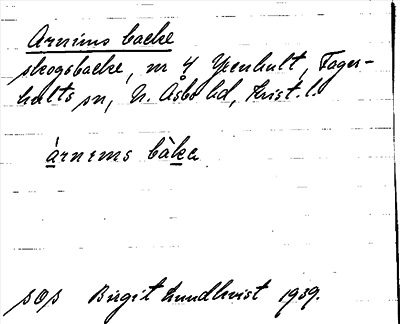 Arnims backe
skogsbacke, nr 4 Ycenhult, Fager-
hults sn, N. Åsbo hd, Krist. l.
árnıms bàka
sOs Birgit Lundkvist 1939.